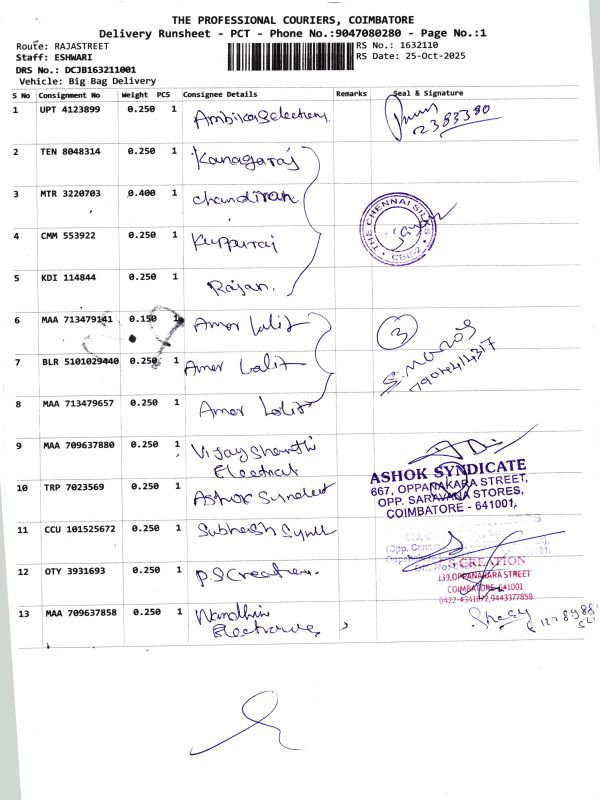 THE PROFESSIONAL COURIERS, COIMBATORE
Delivery Runsheet - PCT - Phone No.:9047080280 - Page No.:1
Route: RAJASTREET
RS No.: 1632110
Staff: ESHWARI
RS Date: 25-Oct-2025
DRS No.: DCJB163211001
Vehicle: Big Bag Delivery
S No Consignment No Weight PCS Consignee Details Remarks Seal & Signature
1 UPT 4123899 0.250 1 2383380
2 TEN 8048314 0.250 1 Kanagaraj
3 MTR 3220703 0.400 1 Chandiran
THE CHENNAI SILKS
CBE-2
4 CMM 553922 0.250 1 Kuppuraj
5 KDI 114844 0.250 1 Rajan.
6 MAA 713479141 0.150 1 Amer Lalit 3
7 BLR 5101029440 0.250 1 Amer Lalit
8 MAA 713479657 0.250 1 Amer Lalit
9 MAA 709637880 0.250 1 Vijayshanthi
Electrical
ASHOK SYNDICATE
667, OPPANAKARA STREET,
OPP. SARAVANA STORES,
COIMBATORE - 641001,
10 TRP 7023569 0.250 1 Ashok
11 CCU 101525672 0.250 1 Subhash
12 OTY 3931693 0.250 1 P.S Creation.
S CREATION
139,OPPANAKARA STREET
COIMBATORE-641001
0422-4341672,9443377858
13 MAA 709637858 0.250 1 Nandhini